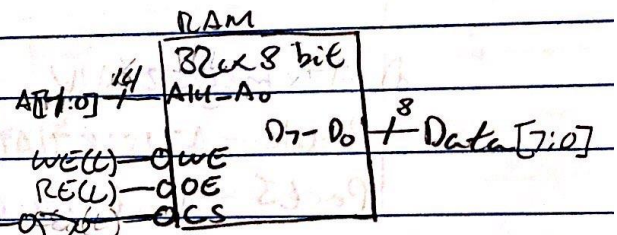 RAM
32k x 8 bit
14
A14-A0
8
D7-D0 Data[7:0]
WE(L) WE
RE(L) OE
CS